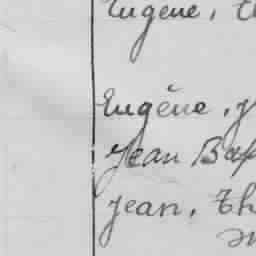 Eugene, 
Eugène, 
Jean Bap
Jean, Th